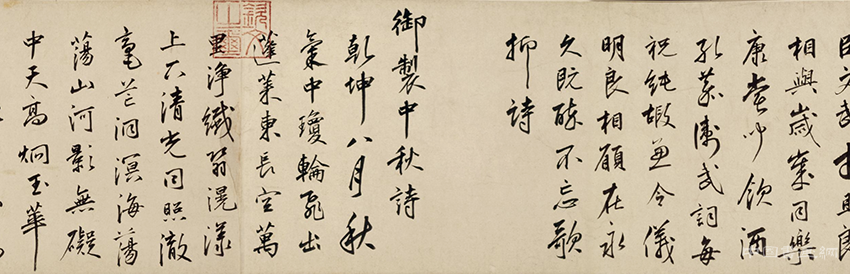 相與歲寒同樂
康飲酒
孔嘉衛武詞每
祝純嘏兼令儀
明良相顧在永
久既醉不忘歌
抑詩
御製中秋詩
乾坤八月秋
氣中瓊輪飛出
蓬萊東長空萬
里淨纖翳滉漾
上下清光同照徹
毫芒洞溟海蕩
蕩山河影無礙
中天高炯玉華